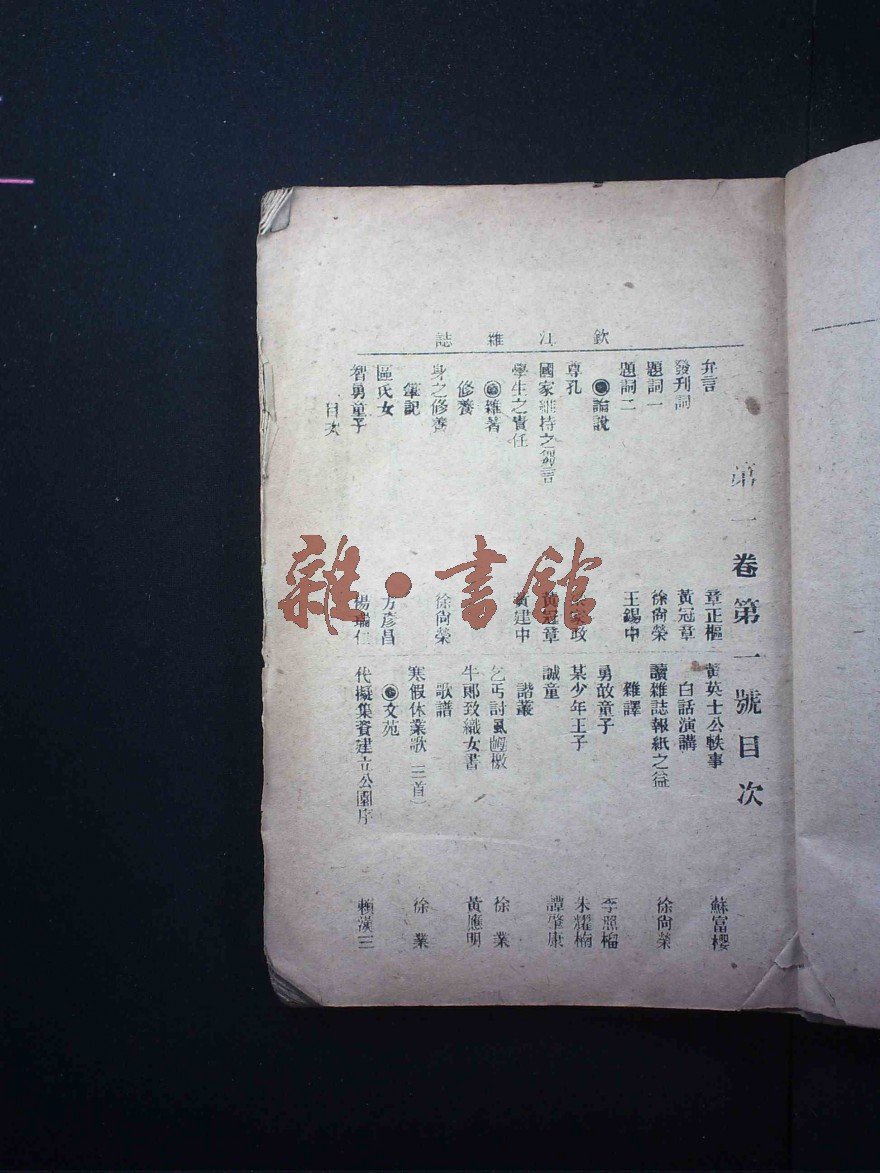 欽江雜誌
第一卷第一號目次
弁言 章正樞
發刊詞 黃冠章
題詞一 徐尙榮
題詞二 王錫中
論說
尊孔 家政
國家維持之芻言 黃冠章
學生之責任 黃建中
雜著
修養
身之修養 徐尙榮
筆記
區氏女 方彦昌
智勇童子 楊瑞仁
黃英士公軼事 蘇富櫻
白話演講
讀雜誌報紙之益 徐尙榮
雜譯
勇敢童子 李照榴
某少年王子 朱耀楠
誠童 譚肇康
諧叢
乞丐討虱檄 徐業
牛郎致織女書 黃應明
歌譜
寒假休業歌（三首） 徐業
文苑
代擬集資建立公園序 賴漢三
目次
雜·書館